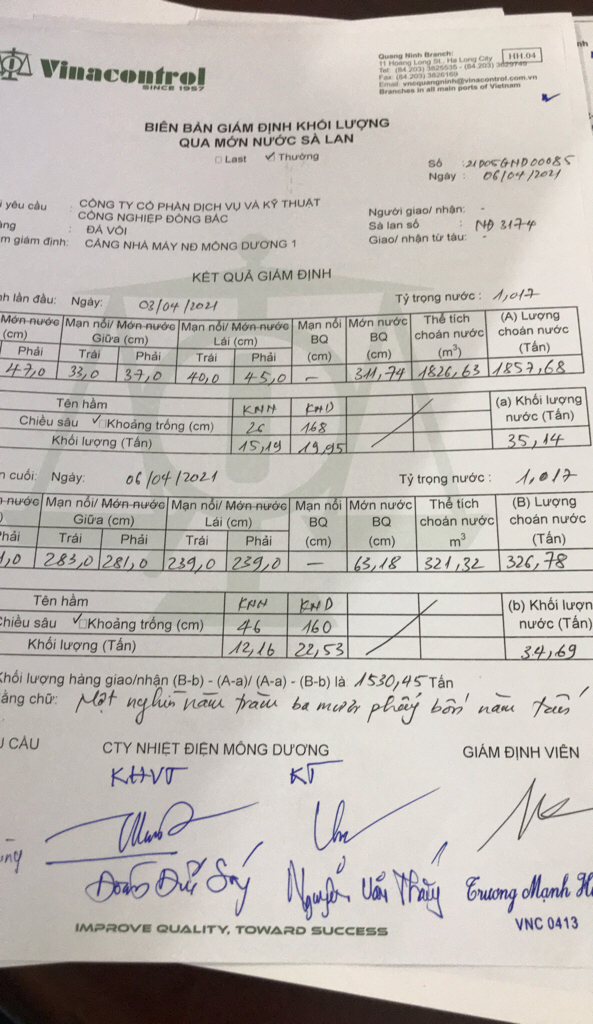 Vinacontrol
SINCE 1957
Quang Ninh Branch:
11 Hoang Long St., Ha Long City
Tel: (84.203) 3825535 - (84.203) 3829749
Fax: (84.203) 3826169
Email: vncquangninh@vinacontrol.com.vn
Branches in all main ports of Vietnam
HH.04
BIÊN BẢN GIÁM ĐỊNH KHỐI LƯỢNG
QUA MỚN NƯỚC SÀ LAN
Last Thường
Số : 21D05GHD00085
Ngày : 06/04/2021
i yêu cầu : CÔNG TY CỔ PHẦN DỊCH VỤ VÀ KỸ THUẬT
CÔNG NGHIỆP ĐÔNG BẮC
àng : ĐÁ VÔI
m giám định: CẢNG NHÀ MÁY NĐ MÔNG DƯƠNG 1
Người giao/ nhận: -
Sà lan số : NĐ 3174
Giao/ nhận từ tàu: -
KẾT QUẢ GIÁM ĐỊNH
nh lần đầu: Ngày: 03/04/2021 Tỷ trọng nước : 1,017
Mớn nước Mạn nổi/ Mớn nước Mạn nổi/ Mớn nước Mạn nổi Mớn nước Thể tích (A) Lượng
(cm) Giữa (cm) Lái (cm) BQ BQ choán nước choán nước
Phải Trái Phải Trái Phải (cm) (cm) (m³) (Tấn)
47,0 33,0 37,0 40,0 45,0 - 311,74 1826,63 1857,68
Tên hầm KHH KHD (a) Khối lượng
Chiều sâu Khoảng trống (cm) 26 168 nước (Tấn)
Khối lượng (Tấn) 15,19 19,95 35,14
n cuối: Ngày: 06/04/2021 Tỷ trọng nước : 1,017
nước Mạn nổi/ Mớn nước Mạn nổi/ Mớn nước Mạn nổi Mớn nước Thể tích (B) Lượng
) Giữa (cm) Lái (cm) BQ BQ choán nước choán nước
hải Trái Phải Trái Phải (cm) (cm) m³ (Tấn)
1,0 283,0 281,0 239,0 239,0 - 63,18 321,32 326,78
Tên hầm KHH KHD (b) Khối lượn
Chiều sâu Khoảng trống (cm) 46 160 nước (Tấn)
Khối lượng (Tấn) 12,16 22,53 34,69
Khối lượng hàng giao/nhận (B-b) - (A-a)/ (A-a) - (B-b) là 1530,45 Tấn
ằng chữ: Một nghìn năm trăm ba mươi phẩy bốn năm tấn
U CẦU CTY NHIỆT ĐIỆN MÔNG DƯƠNG GIÁM ĐỊNH VIÊN
KHVT KT
Nguyễn Văn Thấy Trương Mạnh H
VNC 0413
IMPROVE QUALITY, TOWARD SUCCESS